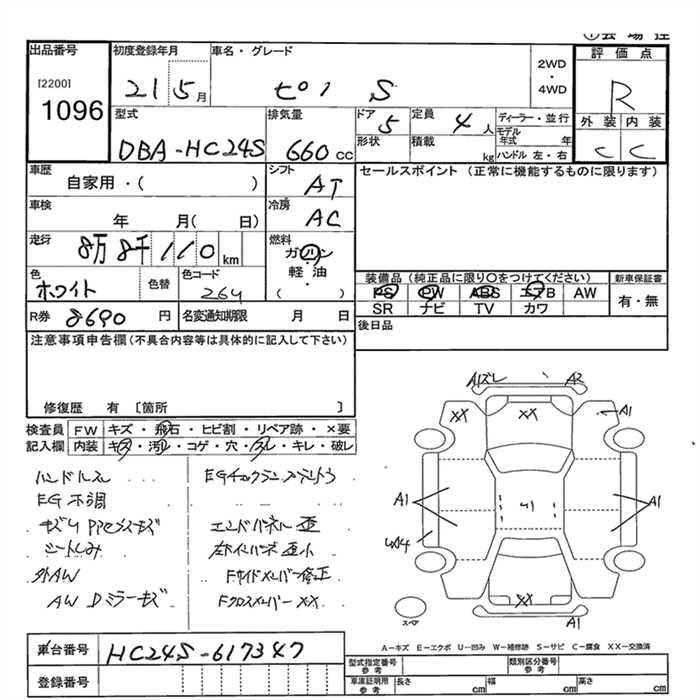 出品番号
[2200]
1096
初度登録年月
21 5月
車名・グレード
ピノ S
2WD
・
4WD
評価点
R
外装 内装
C C
型式
DBA-HC24S
排気量
660 CC
ドア
5
形状
定員
4 人
積載
kg
ディーラー・並行
モデル年式 年
ハンドル 左・右
車歴
自家用・( )
シフト
AT
セールスポイント (正常に機能するものに限ります)
車検
年 月( 日)
冷房
AC
走行
8万 8千 110 km
燃料
ガソリン
軽・油
( )
色
ホワイト
色替
色コード
26U
装備品 (純正品に限り〇をつけてください)
PS PW ABS エアB AW
SR ナビ TV カワ
新車保証書
有・無
R券 8690 円
名変通知期限 月 日
後日品
注意事項申告欄(不具合内容等は具体的に記入して下さい)
修復歴 有 〔箇所 〕
検査員 FW キズ・飛石・ヒビ割・リペア跡・×要
記入欄 内装 キズ・汚れ・コゲ・穴・スレ・キレ・破レ
ハンドルス
EG不調
シートしみ
外AW
AW Dミラーキズ
エンドパネル 歪
Fサイドメンバー修正
Fクロスメンバー XX
A1ズレ A2
XX XX A1
A1 A1
XX
A1
スペア
A－キズ E－エクボ U－凹み W－補修跡 S－サビ C－腐食 XX－交換済
車台番号 HC24S-617347
登録番号
型式指定番号 参考
類別区分番号 参考
車庫証明用 参考 長さ cm 幅 cm 高さ cm